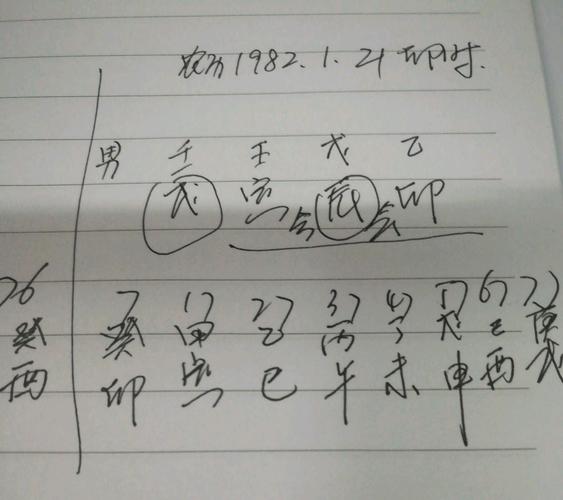 农历1982.1.21卯时.
男 壬 壬 戊 乙
戌 寅 会 辰 会 卯
26 7 17 27 37 47 57 67 77
癸 癸 甲 乙 丙 丁 戊 己 庚
酉 卯 寅 巳 午 未 申 酉 戌